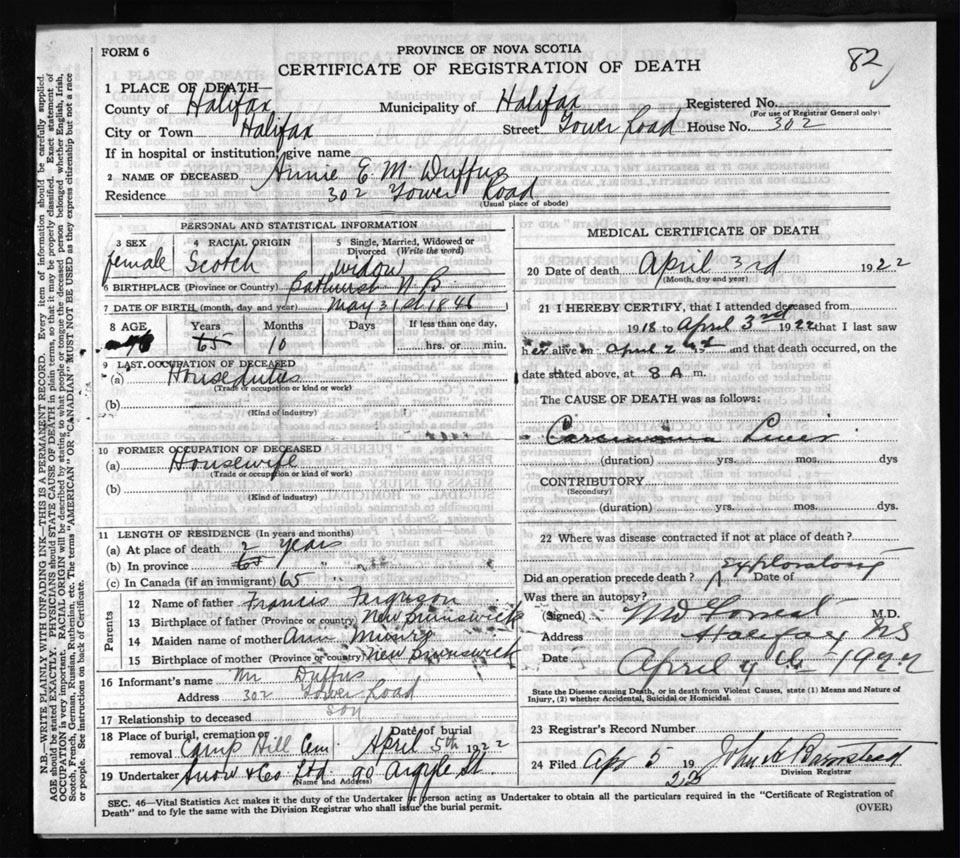 FORM 6
PROVINCE OF NOVA SCOTIA
CERTIFICATE OF REGISTRATION OF DEATH
82
1 PLACE OF DEATH—
County of Halifax Municipality of Halifax Registered No.
(For use of Registrar General only)
City or Town Halifax Street Tower Road House No. 302
If in hospital or institution, give name
2 NAME OF DECEASED Annie E. M. Duffus
Residence 302 Tower Road
(Usual place of abode)
PERSONAL AND STATISTICAL INFORMATION
3 SEX 4 RACIAL ORIGIN 5 Single, Married, Widowed or Divorced (Write the word)
female Scotch Widow
6 BIRTHPLACE (Province or Country) Bathurst N B
7 DATE OF BIRTH (month, day and year) May 31st 1846
8 AGE Years Months Days If less than one day,
65 10 hrs. or min.
9 LAST OCCUPATION OF DECEASED
(a) Houseduties
(Trade or occupation or kind of work)
(b)
(Kind of industry)
10 FORMER OCCUPATION OF DECEASED
(a) Housewife
(Trade or occupation or kind of work)
(b)
(Kind of industry)
11 LENGTH OF RESIDENCE (In years and months)
(a) At place of death 2 years
(b) In province 65 " "
(c) In Canada (if an immigrant) 65
Parents
12 Name of father Francis Ferguson
13 Birthplace of father (Province or country) New Brunswick
14 Maiden name of mother Ann Munro
15 Birthplace of mother (Province or country) New Brunswick
16 Informant's name Mr Duffus
Address 302 Tower Road
17 Relationship to deceased son
18 Place of burial, cremation or removal Camp Hill Cem. Date of burial April 5th 1922
19 Undertaker Snow & Co Ltd 90 Argyle St.
(Name and Address)
MEDICAL CERTIFICATE OF DEATH
20 Date of death April 3rd 1922
(Month, day and year)
21 I HEREBY CERTIFY, that I attended deceased from
1918 to April 3rd 1922 that I last saw
her alive on April 2nd and that death occurred, on the
date stated above, at 8 A m.
The CAUSE OF DEATH was as follows:
Carcinoma Liver
(duration) yrs. mos. dys
CONTRIBUTORY
(Secondary)
(duration) yrs. mos. dys
22 Where was disease contracted if not at place of death?
Did an operation precede death? Exploratory Date of
Was there an autopsy?
(Signed) M.D.
Address Halifax NS
Date April 4th 1922
State the Disease causing Death, or in death from Violent Causes, state (1) Means and Nature of
Injury, (2) whether Accidental, Suicidal or Homicidal.
23 Registrar's Record Number
24 Filed Apr 5 1922 John A
Division Registrar
SEC. 46—Vital Statistics Act makes it the duty of the Undertaker or person acting as Undertaker to obtain all the particulars required in the "Certificate of Registration of
Death" and to fyle the same with the Division Registrar who shall issue the burial permit.
(OVER)
N.B.—WRITE PLAINLY WITH UNFADING INK—THIS IS A PERMANENT RECORD. Every item of information should be carefully supplied.
AGE should be stated EXACTLY. PHYSICIANS should STATE CAUSE OF DEATH in plain terms, so that it may be properly classified. Exact statement of
OCCUPATION is very important. RACIAL ORIGIN will be described by stating to what people or tongue the deceased person belonged whether English, Irish,
Scotch, French, German, Russian, Ruthenian, etc. The terms "AMERICAN" OR "CANADIAN" MUST NOT BE USED as they express citizenship but not a race
or people. See instructions on back of Certificate.